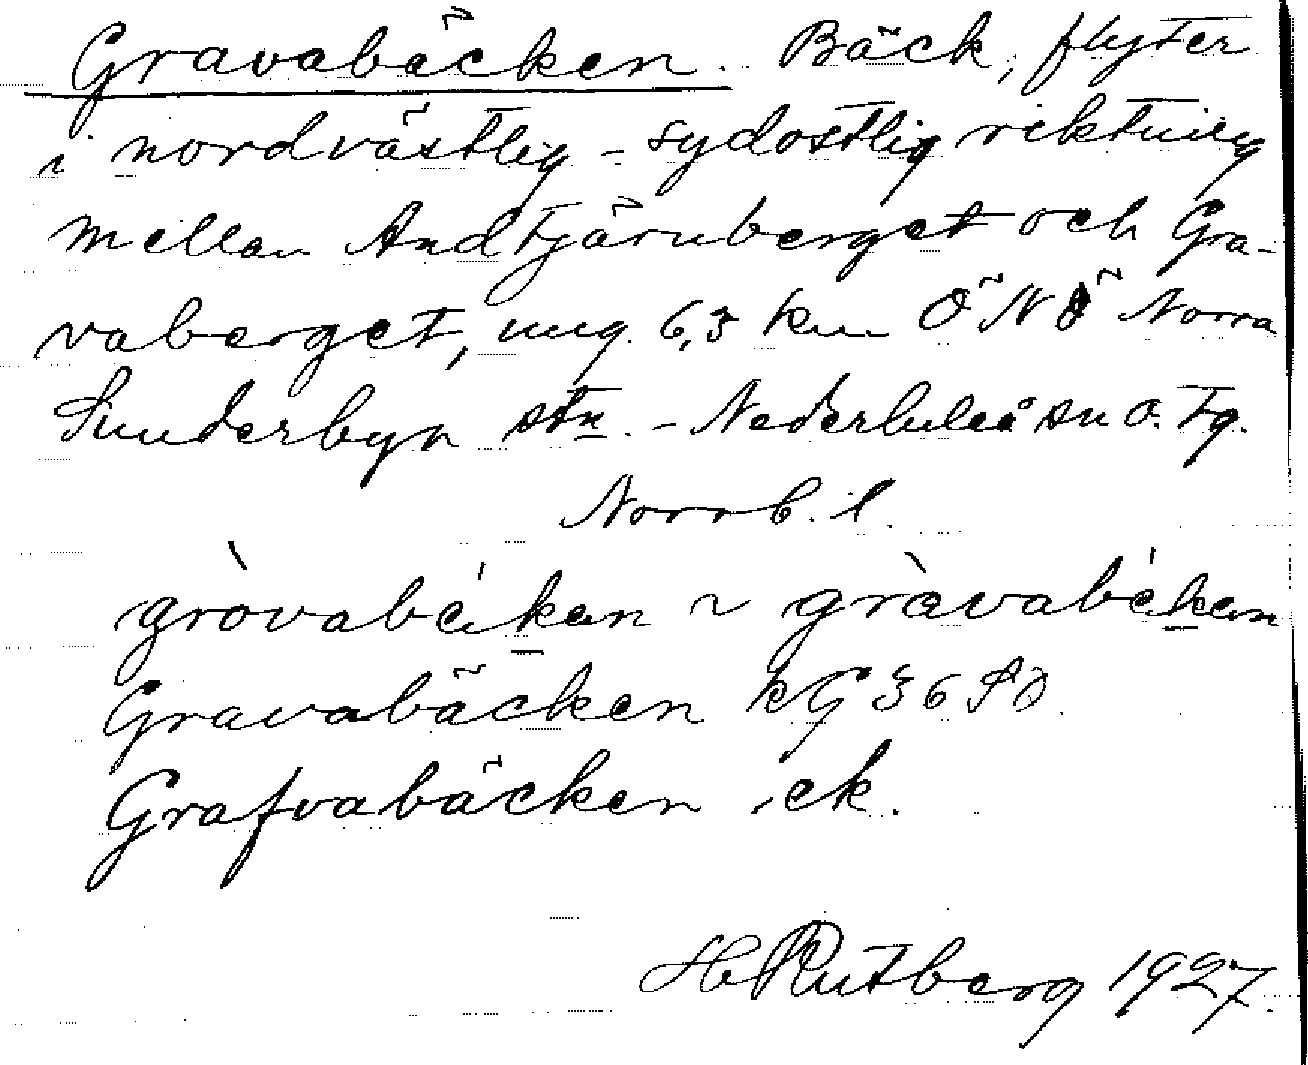 Gravabäcken. Bäck, flyter
i nordvästlig - sydostlig riktning
mellan Andtjärnberget och Gra-
vaberget, ung. 6,5 km ÖNÖ Norra
Sunderbyn stn. - Nederluleå sn o. tg.
Norrb. l.
gròvabäkan ~ gràvabäkan
Gravabäcken kG 36 SO
Grafvabäcken ek.
H Rutberg 1927.